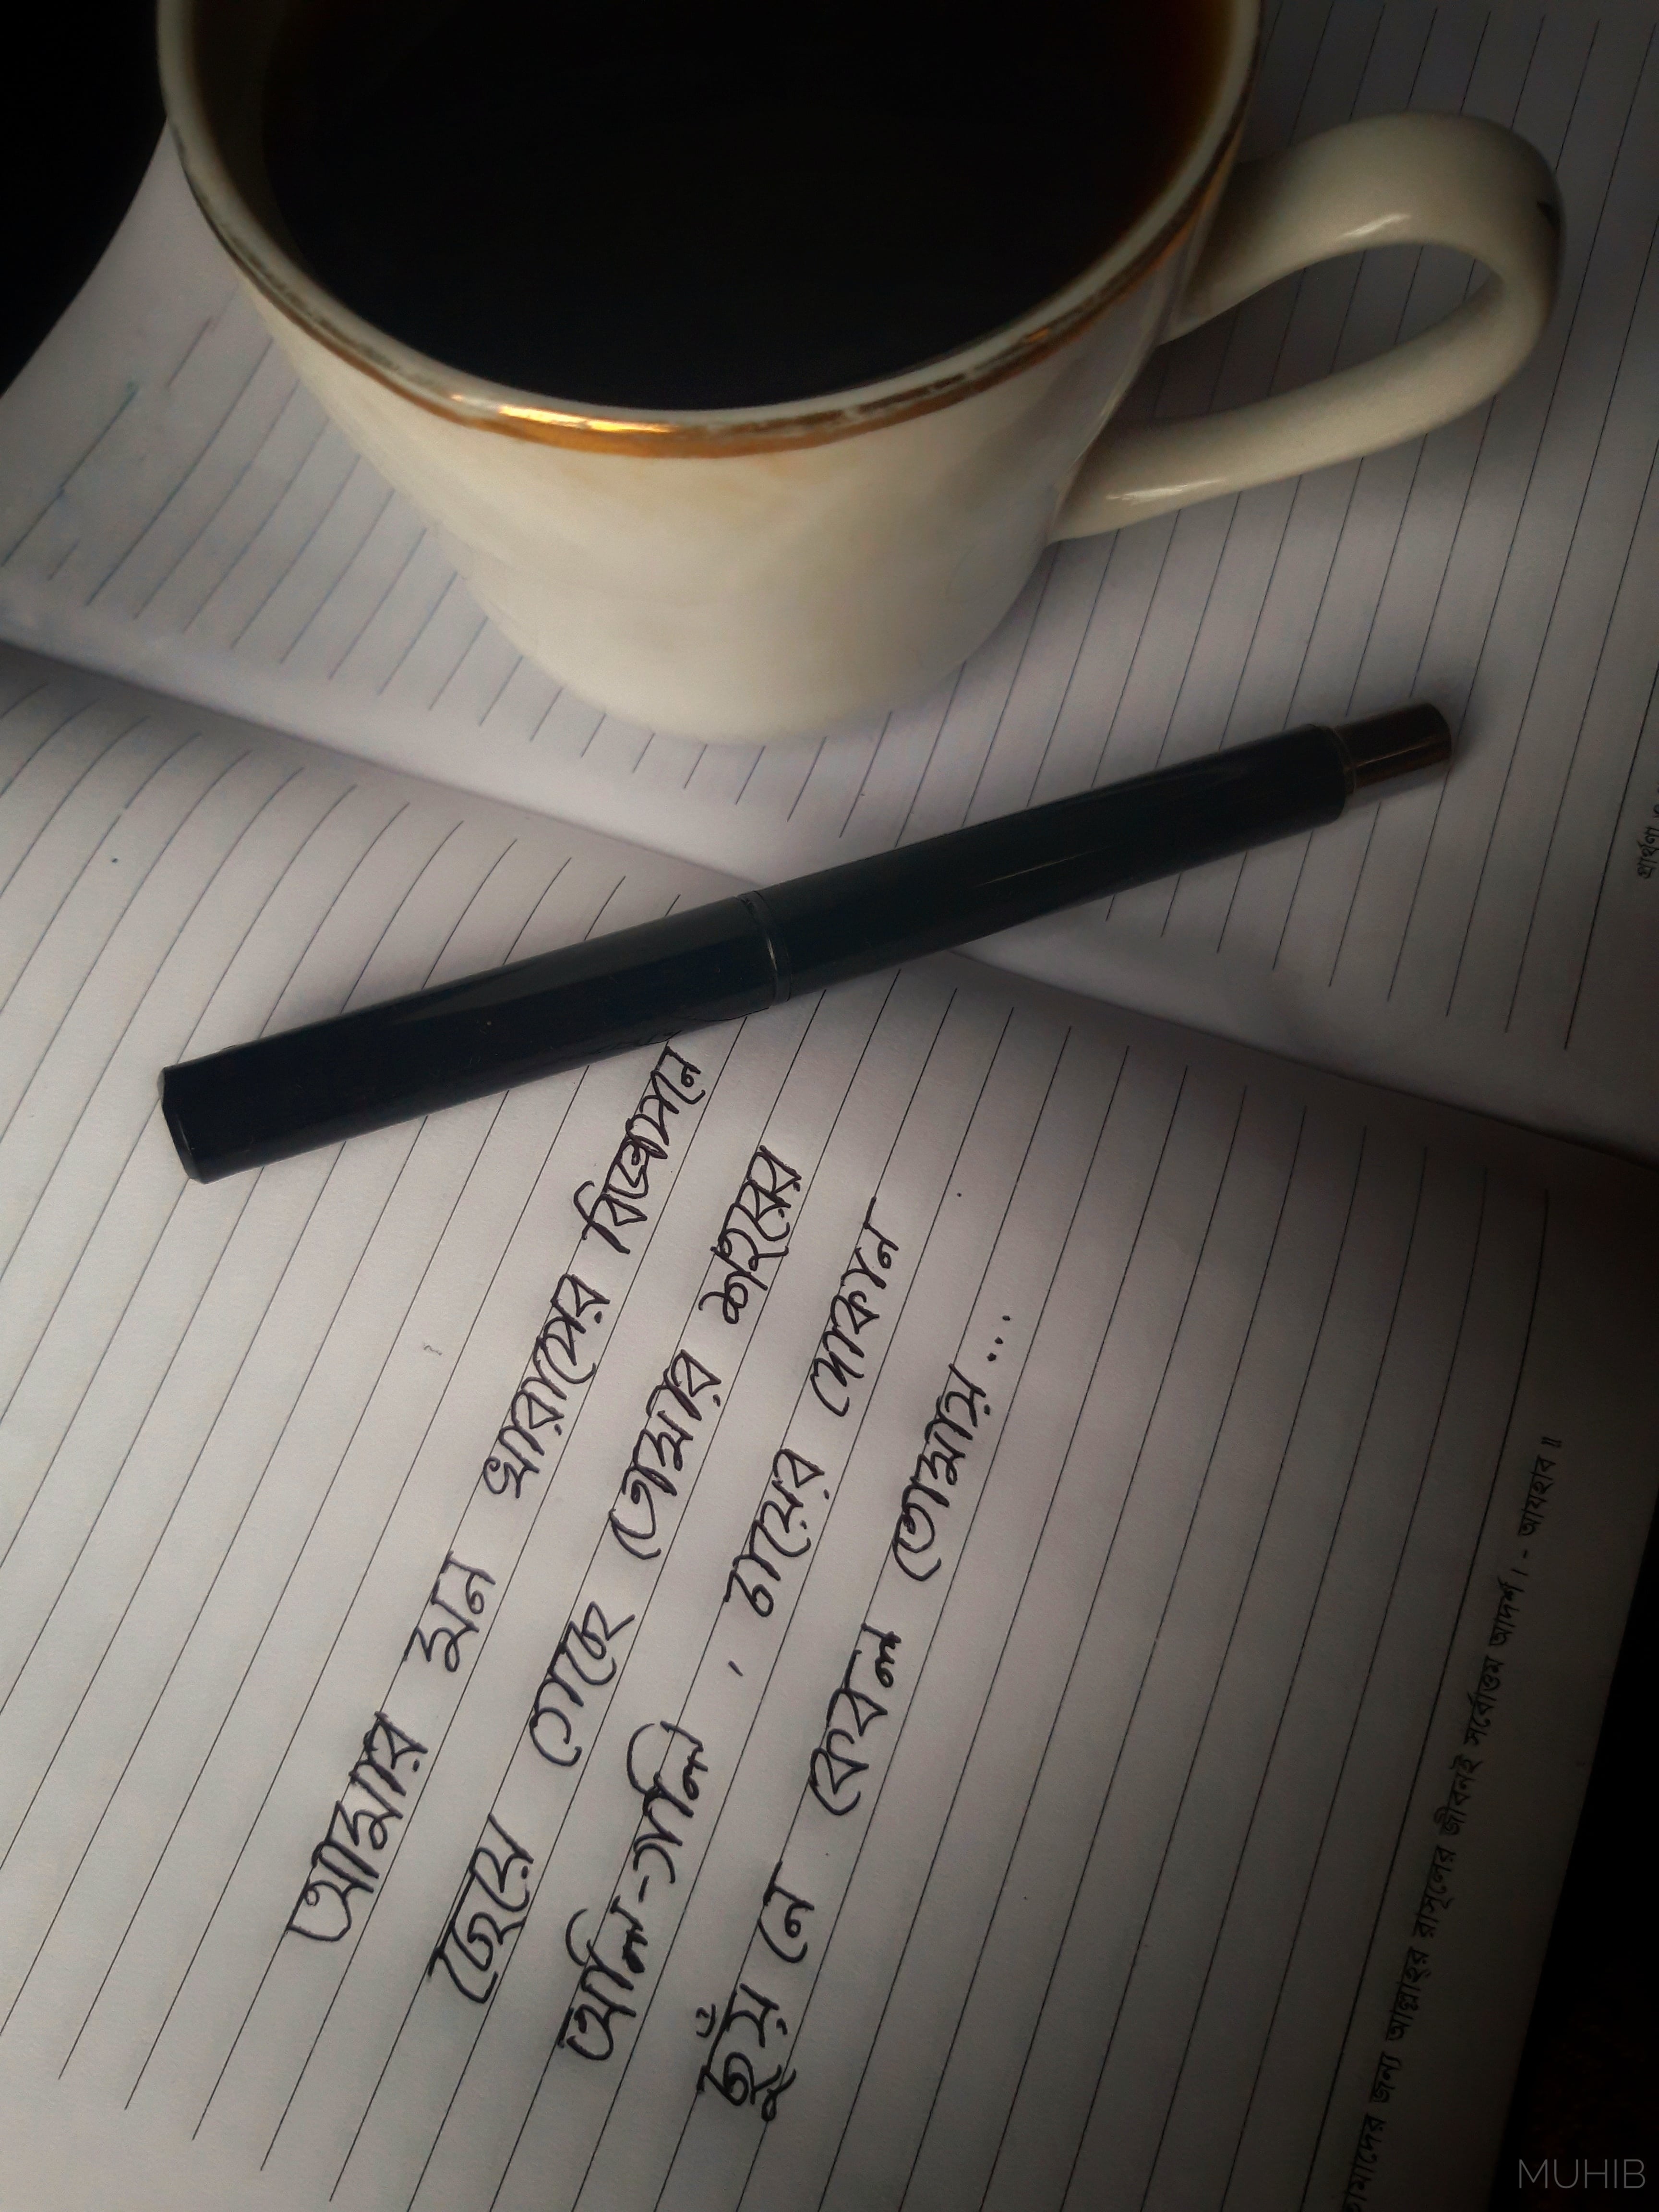 আমার মন খারাপের বিজ্ঞাপনে
ছেয়ে গেছে তোমার শহরের
অলি-গলি, চায়ের দোকান
ছুঁয় নে কেবল তোমায়...
তোমাদের জন্য আল্লাহর রাসূলের জীবনই সর্বোত্তম আদর্শ। - আযহাব॥
MUHIB